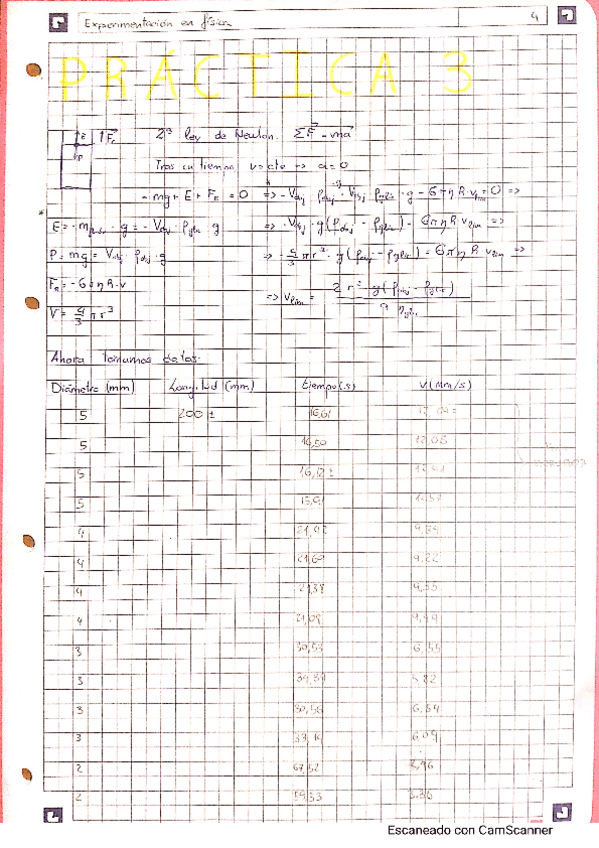 Experimentación en física
4
PRÁCTICA 3
E Fr
P
2ª ley de Newton. ΣF = ma
Tras un tiempo v=cte => a=0
-mg + E + FR = 0 => - Vobj ρobj · g Vobj ρglic · g - 6πηR·vlim = 0 =>
E = -mfluido · g = -Vobj · ρglic · g => -Vobj · g(ρobj - ρglic) = 6πηR·vlim =>
P = mg = Vobj · ρobj · g => -4/3 πr³ · g(ρobj - ρglic) = 6πηR vlim =>
FR = -6πηR·v
V = 4/3 πr³ => vlim = 2 r² g(ρobj - ρglic) / 9 ηglic
Ahora tomamos datos:
Diámetro (mm) Longitud (mm) tiempo (s) v (mm/s)
5 200 16,61
5 16,50
5 16,12
5
4 21,42
4 21,69 9,22
4 21,38 9,35
4 21,08 9,49
3 30,53 6,55
3 34,34 5,82
3 30,56 6,54
3 6,09
2 67,52 2,96
2 59,53 3,36
Escaneado con CamScanner